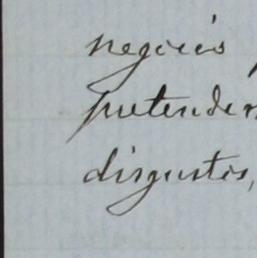 negocios
pretender
disgustos,